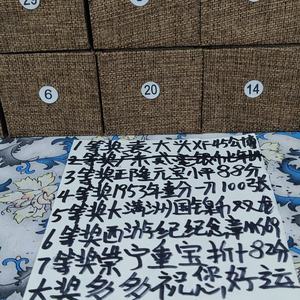 29
6
20
14
1等奖袁大头XF45公博
3等奖正隆元宝小平88分
4等奖1953年壹分一刀100张
5等奖大满洲国
6等奖西游纪纪念章MS69
7等奖崇宁重宝折十82分
大奖多多祝您好运